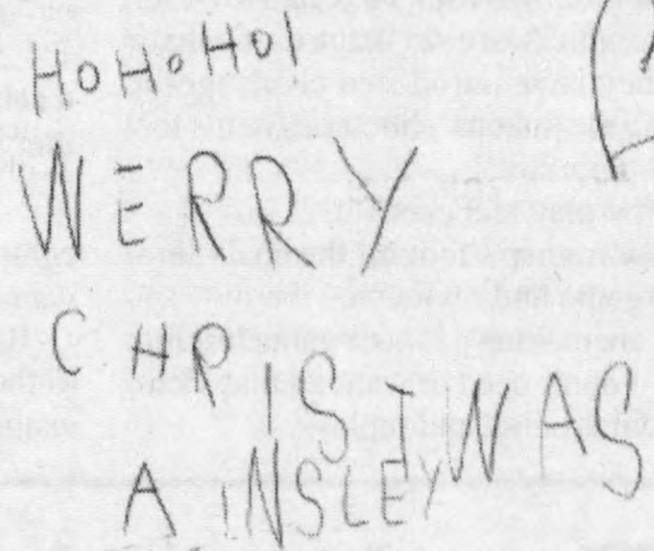 HO HO HO!
WERRY
CHRSTWAS
AINSLEY